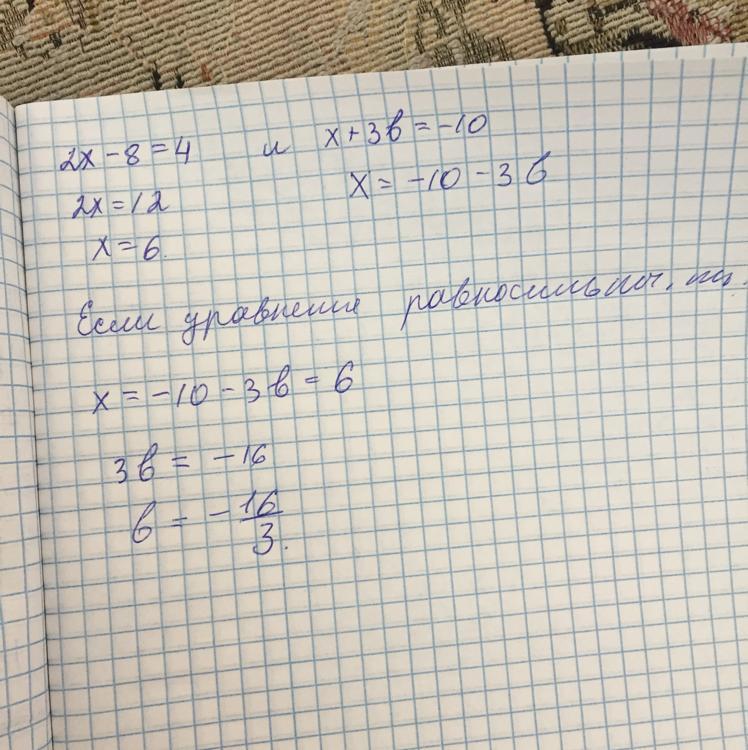 2x - 8 = 4 и x + 3b = -10
2x = 12 x = -10 - 3b
x = 6.
Если уравнения равносильны,
x = -10 - 3b = 6
3b = -16
b = -16/3.